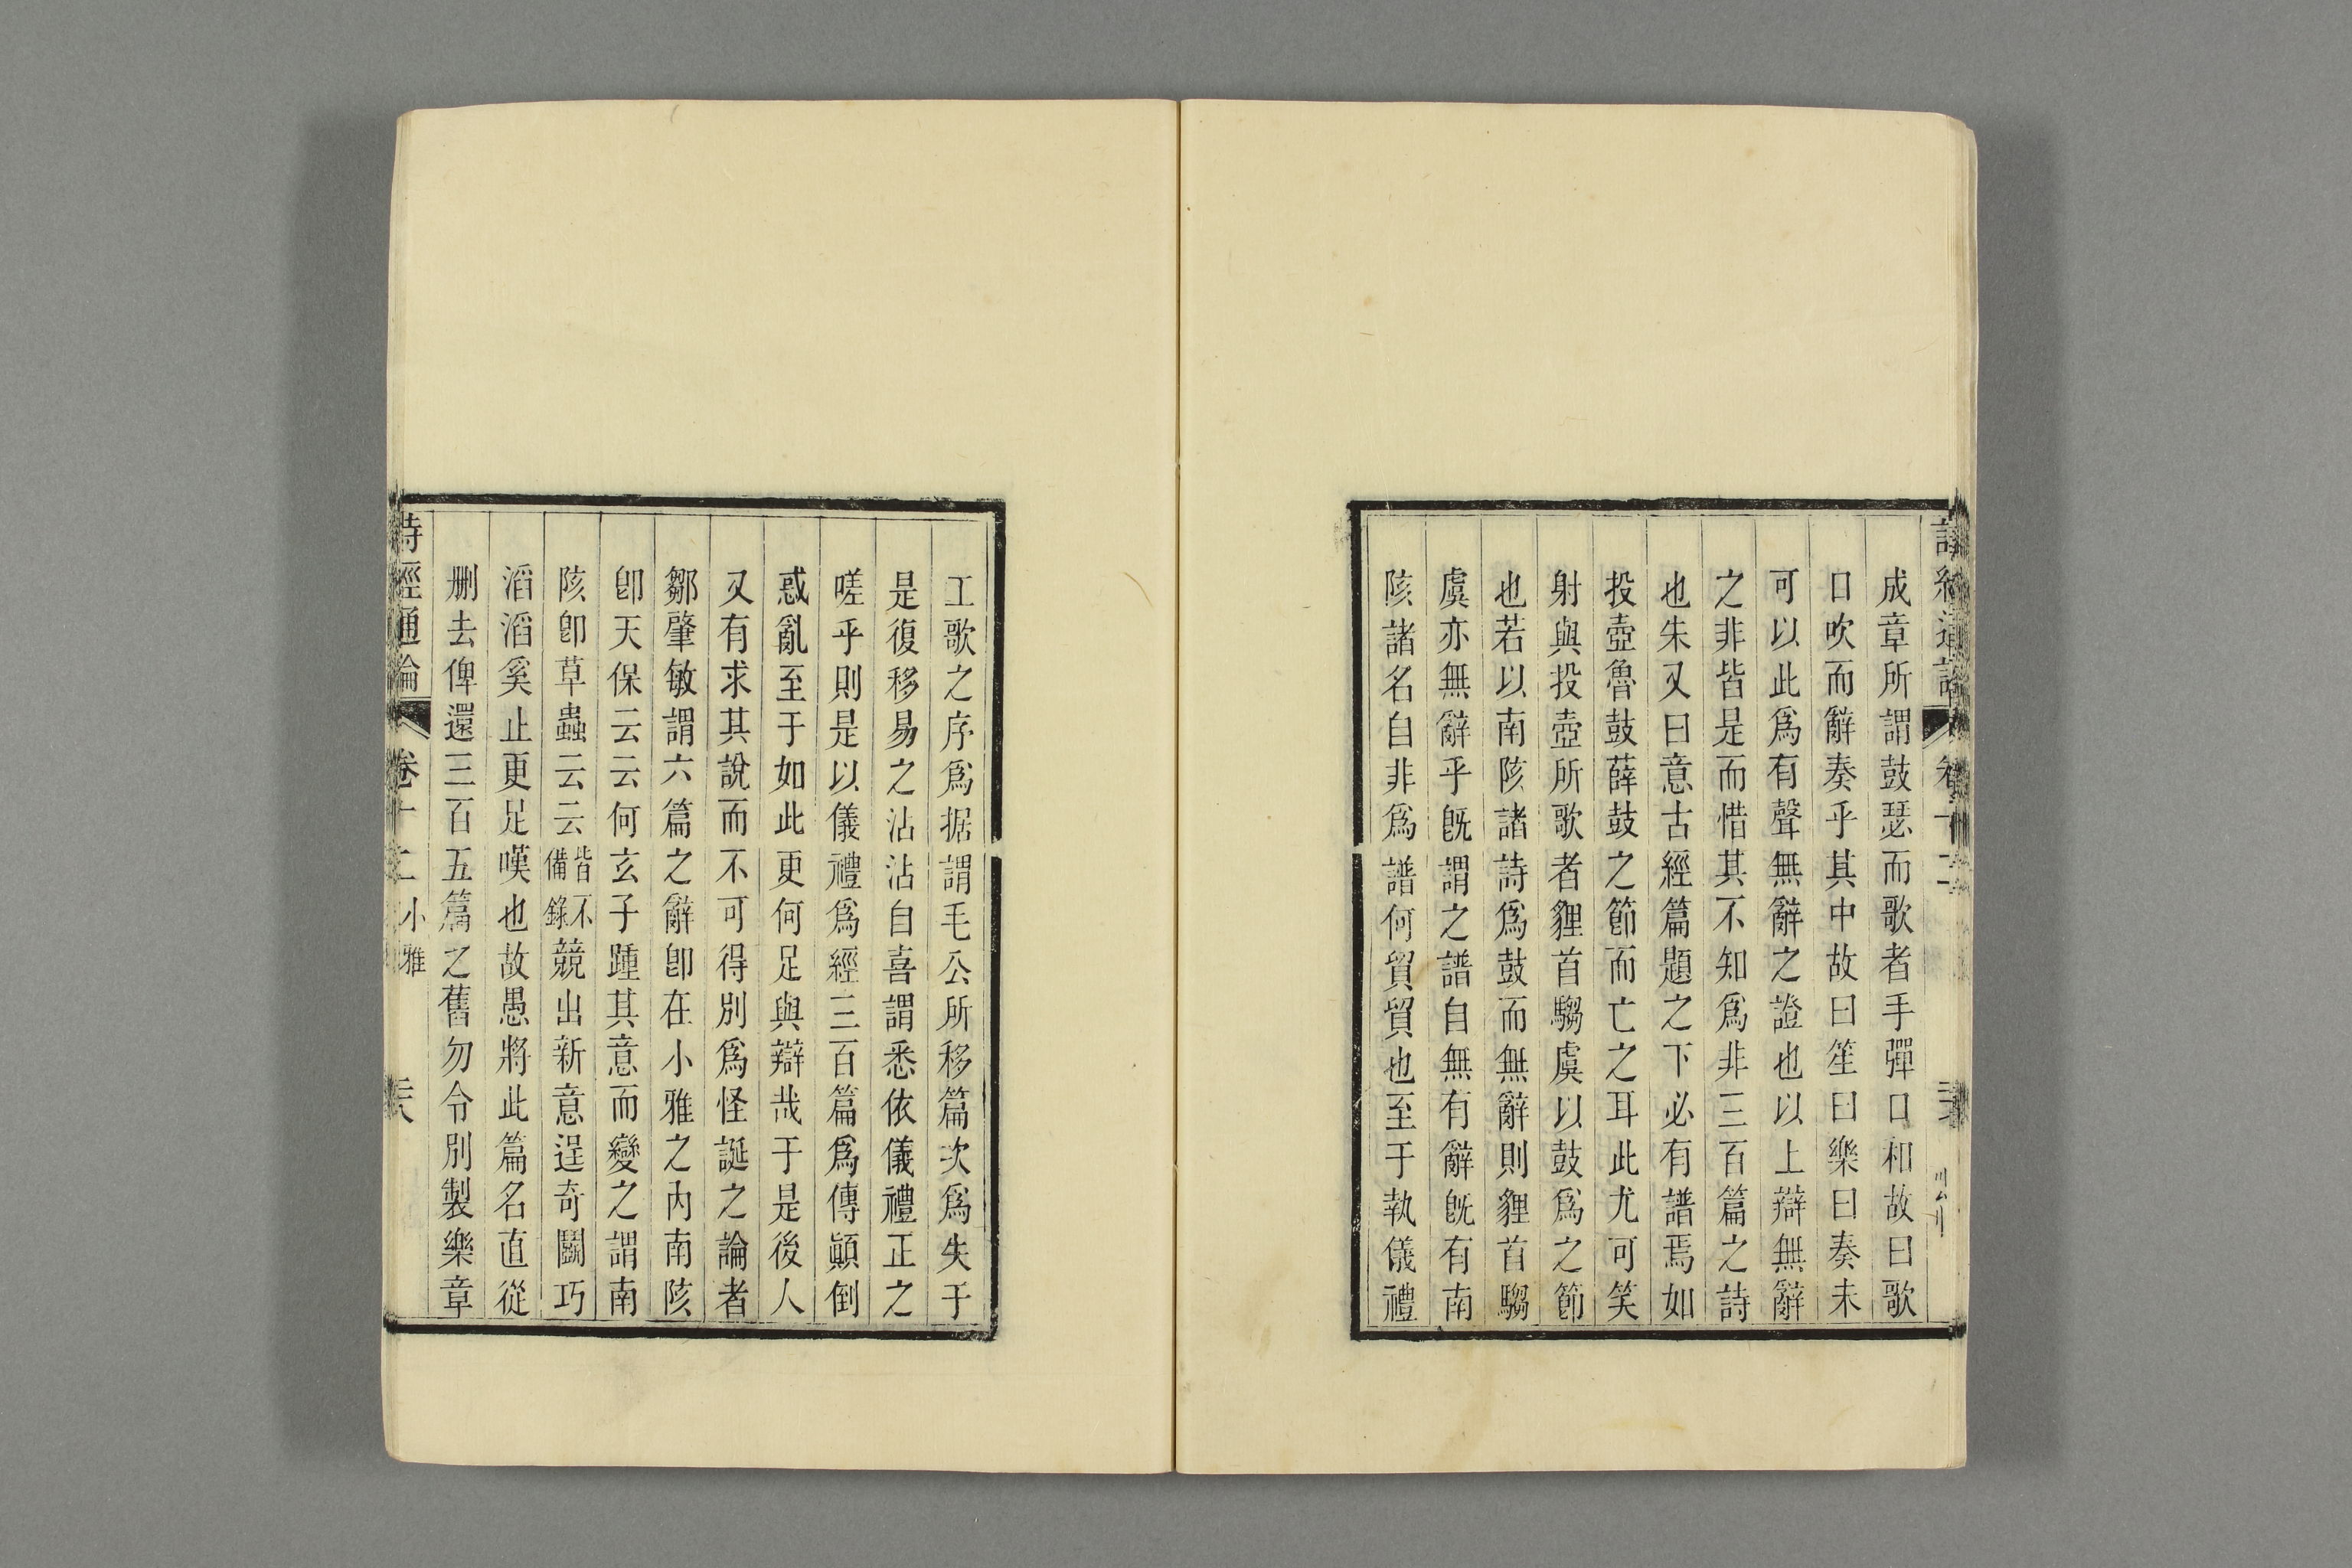 成章所謂鼓瑟而歌者手彈口和故曰歌
口吹而辭奏乎其中故曰笙曰樂曰奏未
可以此爲有聲無辭之證也以上辯無辭
之非皆是而惜其不知爲非三百篇之詩
也朱又曰意古經篇題之下必有譜焉如
投壺魯鼓薛鼓之節而亡之耳此尤可笑
射與投壺所歌者貍首騶虞以鼓爲之節
也若以南陔諸詩爲鼓而無辭則貍首騶
虞亦無辭乎旣謂之譜自無有辭旣有南
陔諸名自非爲譜何貿貿也至于執儀禮
工歌之序爲据謂毛公所移篇次爲失于
是復移易之沾沾自喜謂悉依儀禮正之
嗟乎則是以儀禮爲經三百篇爲傳顚倒
惑亂至于如此更何足與辯哉于是後人
又有求其說而不可得別爲怪誕之論者
鄒肇敏謂六篇之辭卽在小雅之內南陔
卽天保云云何玄子踵其意而變之謂南
陔卽草蟲云云皆不備錄競出新意逞奇鬪巧
滔滔奚止更足嘆也故愚將此篇名直從
刪去俾還三百五篇之舊勿令別製樂章
詩經通論 卷十二 小雅